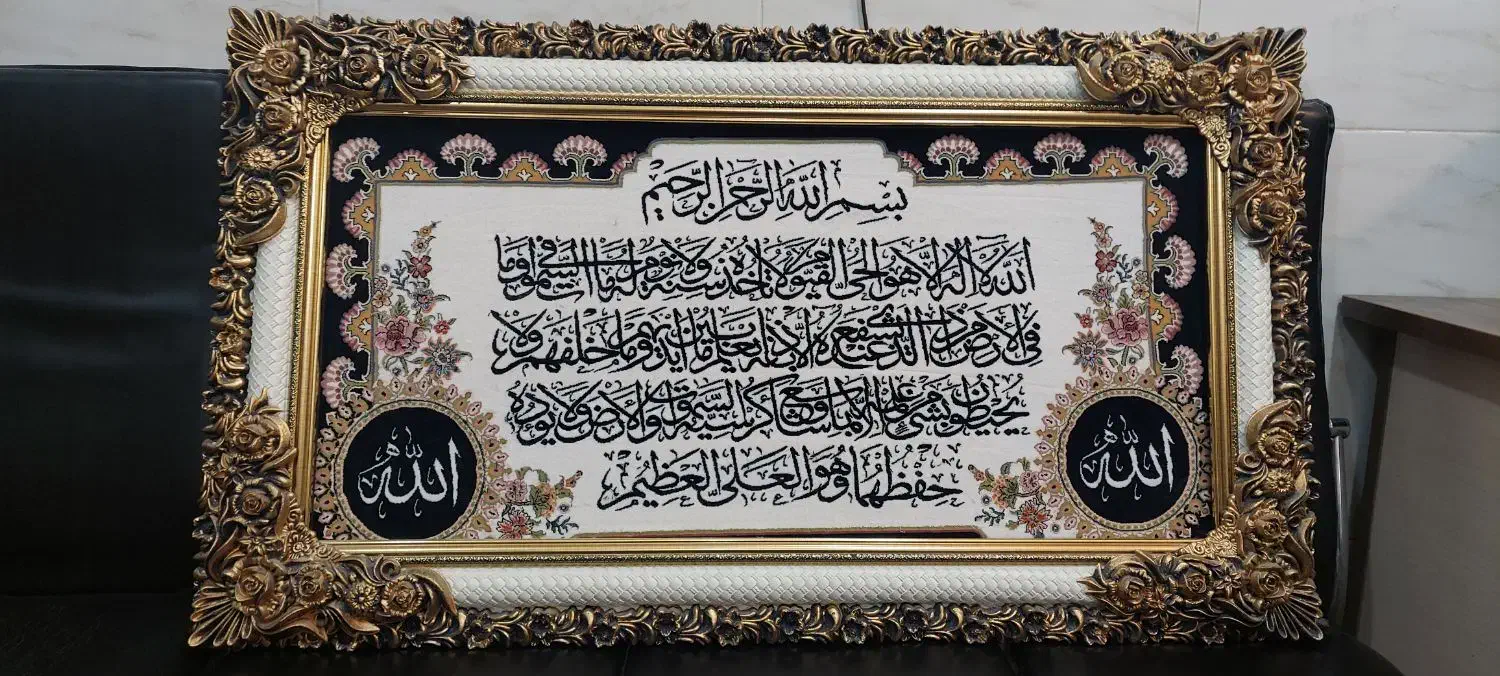 بسم الله الرحمن الرحيم
الله لا اله الا هو الحي القيوم لا تاخذه سنة ولا نوم له ما في السموات وما
في الارض من ذا الذي يشفع عنده الا باذنه يعلم ما بين ايديهم وما خلفهم ولا
يحيطون بشئ من علمه الا بما شاء وسع كرسيه السموات والارض ولا يوده
حفظهما وهو العلي العظيم
الله
الله